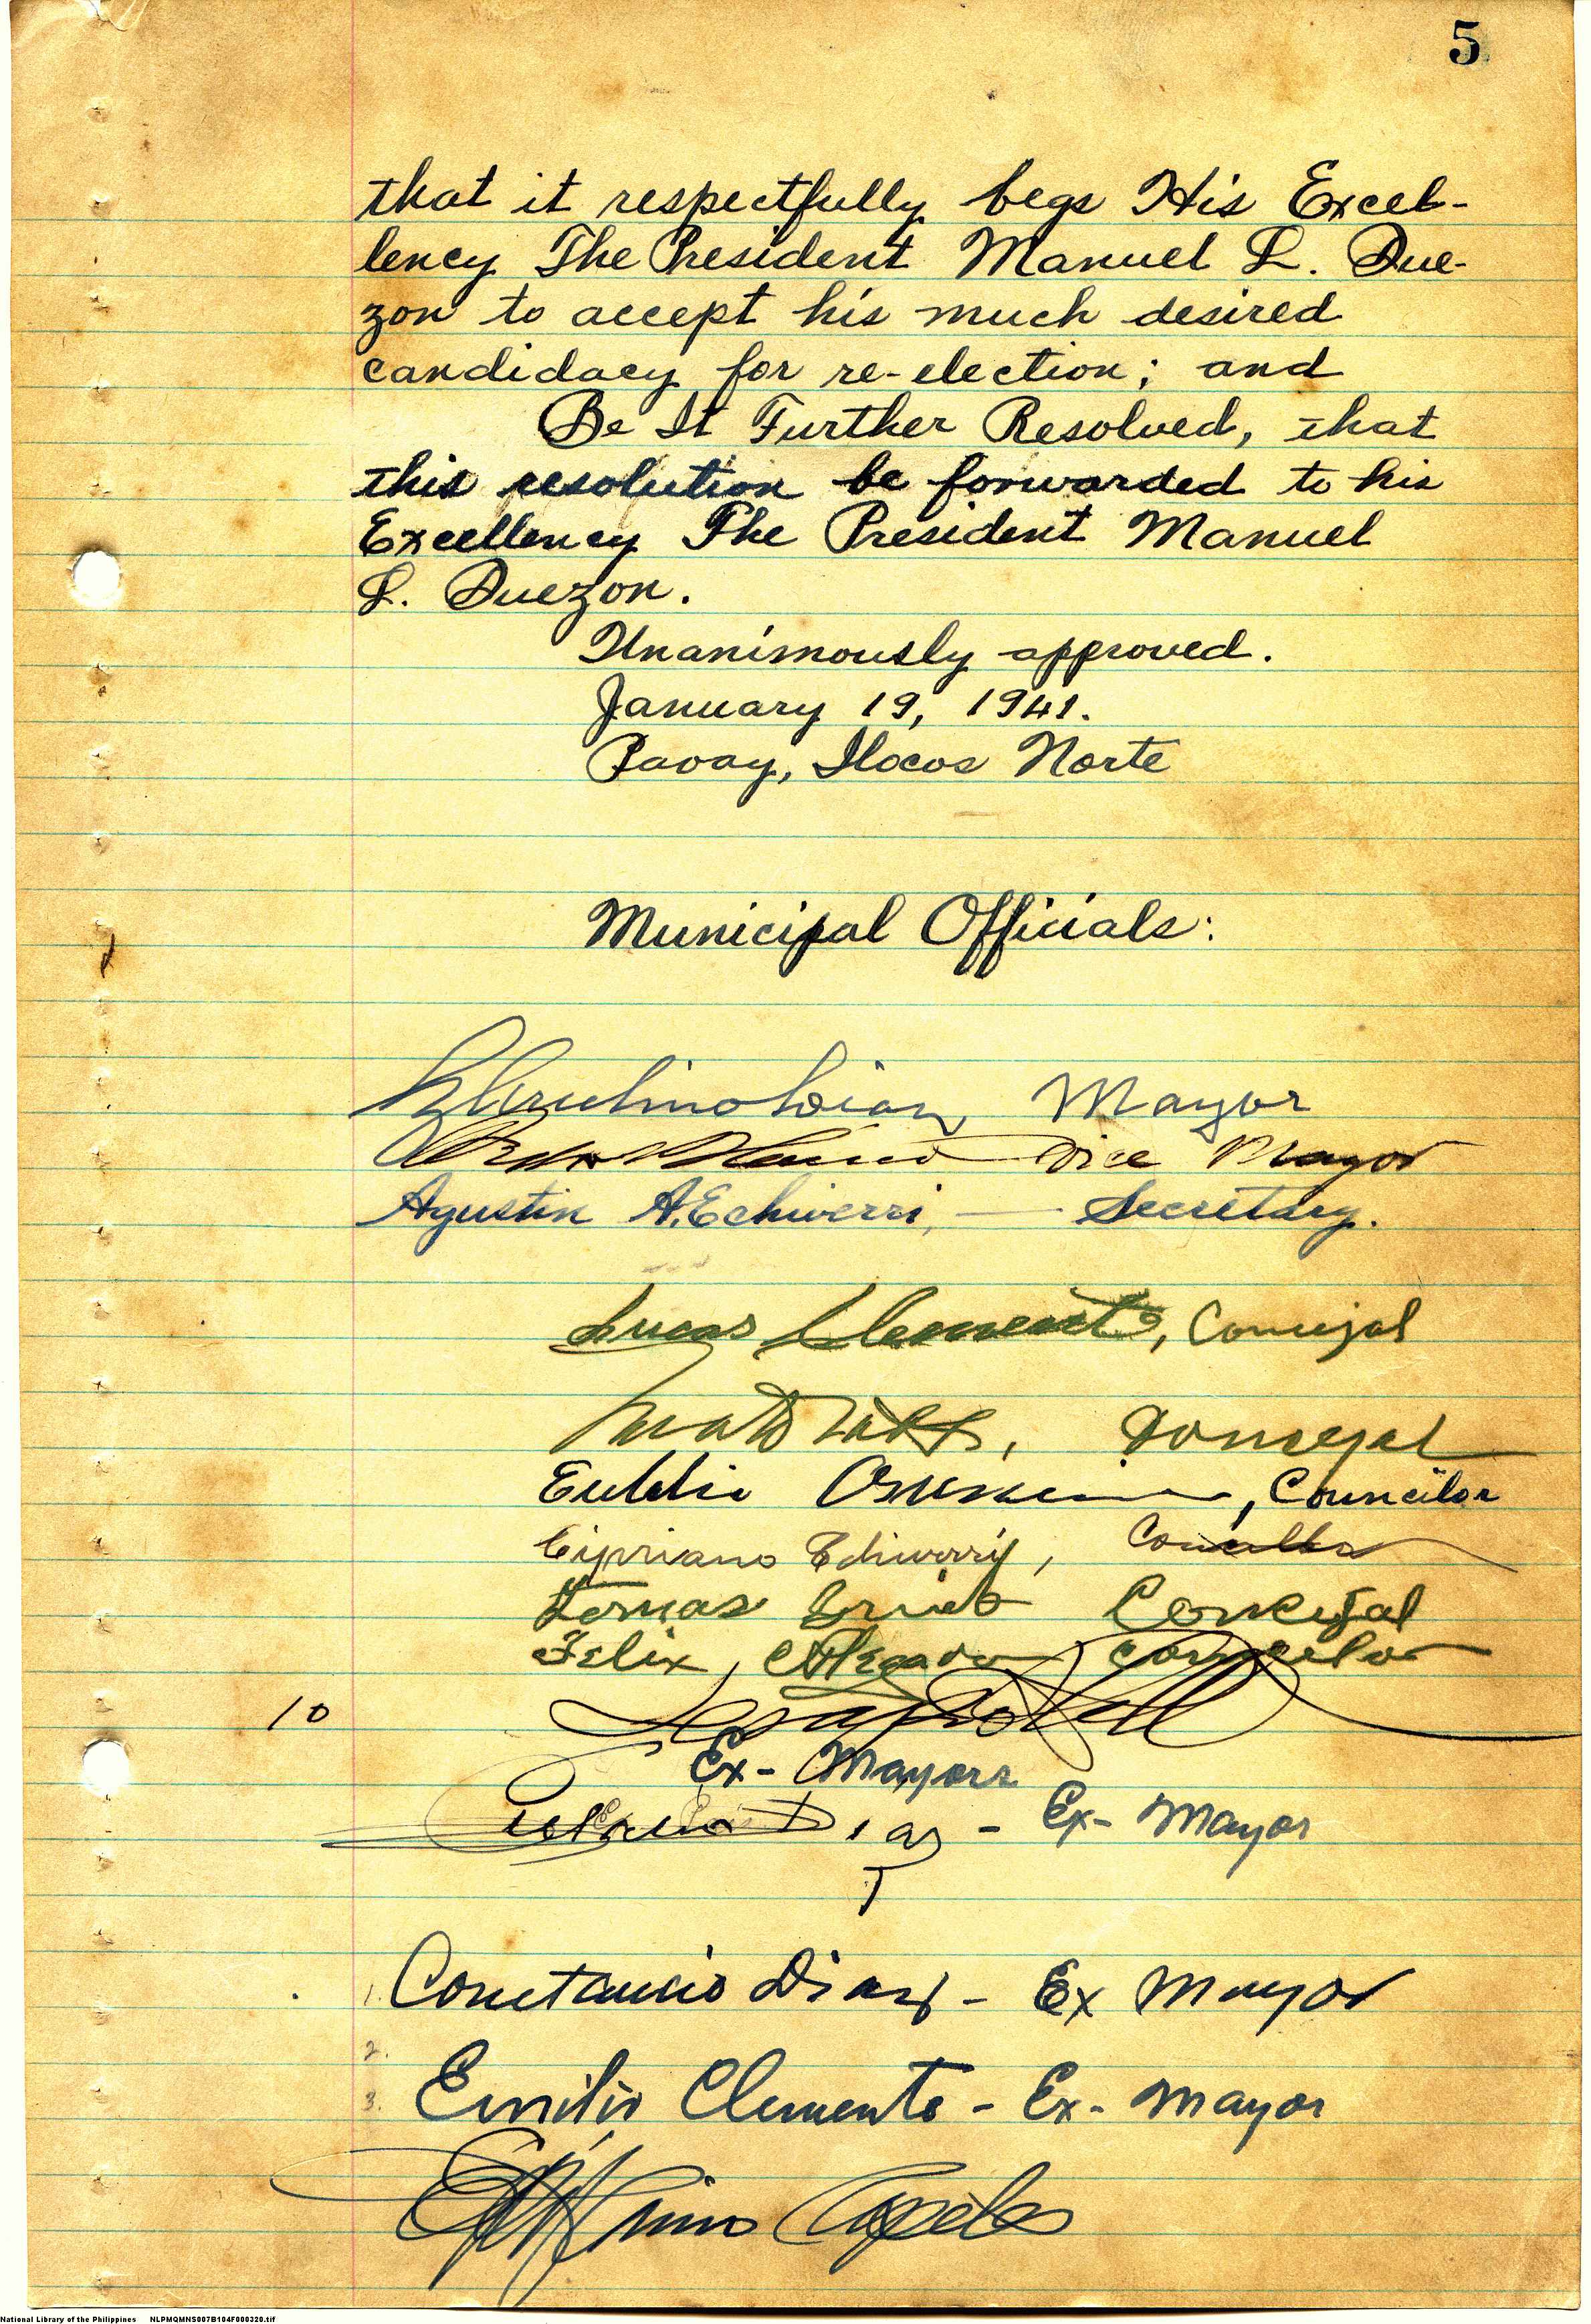 5
that it respectfully begs His Excel-
lency The President Manuel L. Que-
zon to accept his much desired
candidacy for re-election; and
Be It Further Resolved, that
this resolution be forwarded to his
Excellency The President Manuel
L. Quezon.
Unanimously approved.
January 19, 1941.
Paoay, Ilocos Norte
Municipal Officials:
Mayor
Vice Mayor
Agustin A. Echiverri, — Secretary.
Lucas Clemente, Concejal
Concejal
Councilor
Cipriano Echiverri,
Tomas Concejal
Felix Councilor
10
Ex-Mayors
Diaz - Ex-Mayor
1. Constancio Diaz - Ex Mayor
2.
3. Emilio Clemente - Ex-Mayor
National Library of the Philippines NLPMQMNS007B104F000320.tif